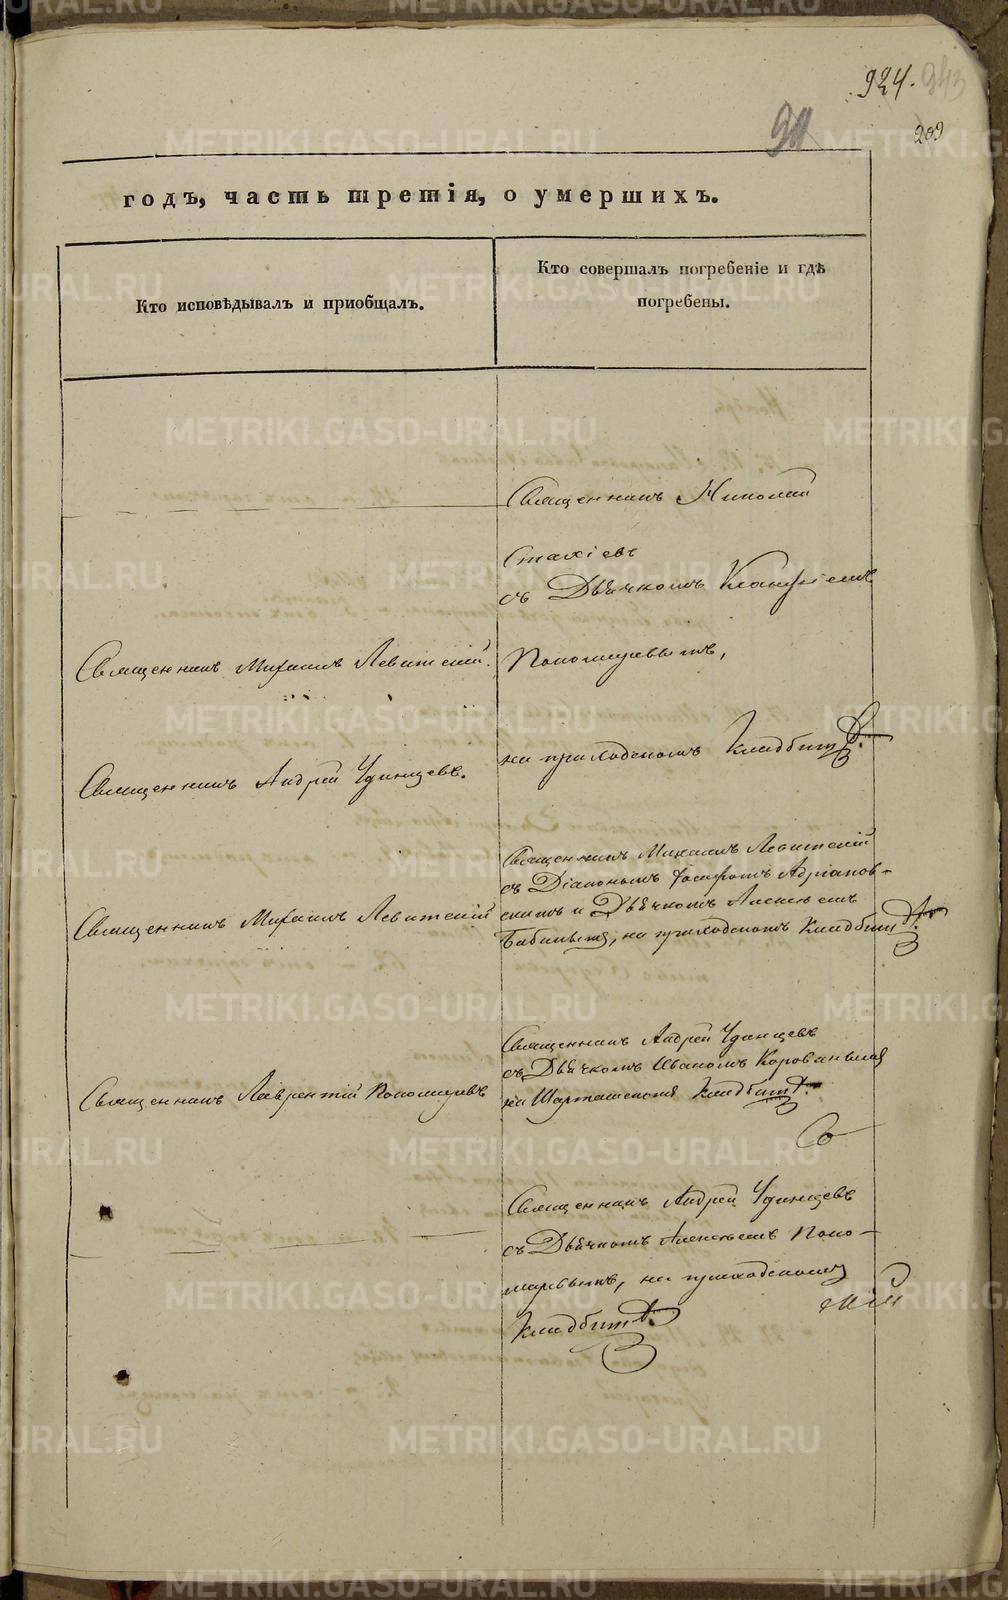 924. 943
209
годъ, часть третія, о умершихъ.
Кто исповѣдывалъ и приобщалъ.
Кто совершалъ погребеніе и гдѣ
погребены.
Священникъ Николай
Стахіевъ
съ Дьячкомъ
Священникъ Михаилъ Левитскій.
Пономаревымъ,
на приходскомъ кладбищѣ.
Священникъ Андрей Удинцевъ.
Священникъ Михаилъ Левитскій
съ Діакономъ Іосифомъ Адріанов-
скимъ и Дьячкомъ Алексѣемъ
Священникъ Михаилъ Левитскій
Бабинымъ, на приходскомъ кладбищѣ.
Священникъ Андрей Удинцевъ
съ Дьячкомъ Иваномъ Короваевымъ
Священникъ Лаврентій Пономаревъ
на Шарташскомъ кладбищѣ.
Священникъ Андрей Удинцевъ
съ Дьячкомъ Алексѣемъ Поно-
маревымъ, на приходскомъ
кладбищѣ.
METRIKI.GASO-URAL.RU